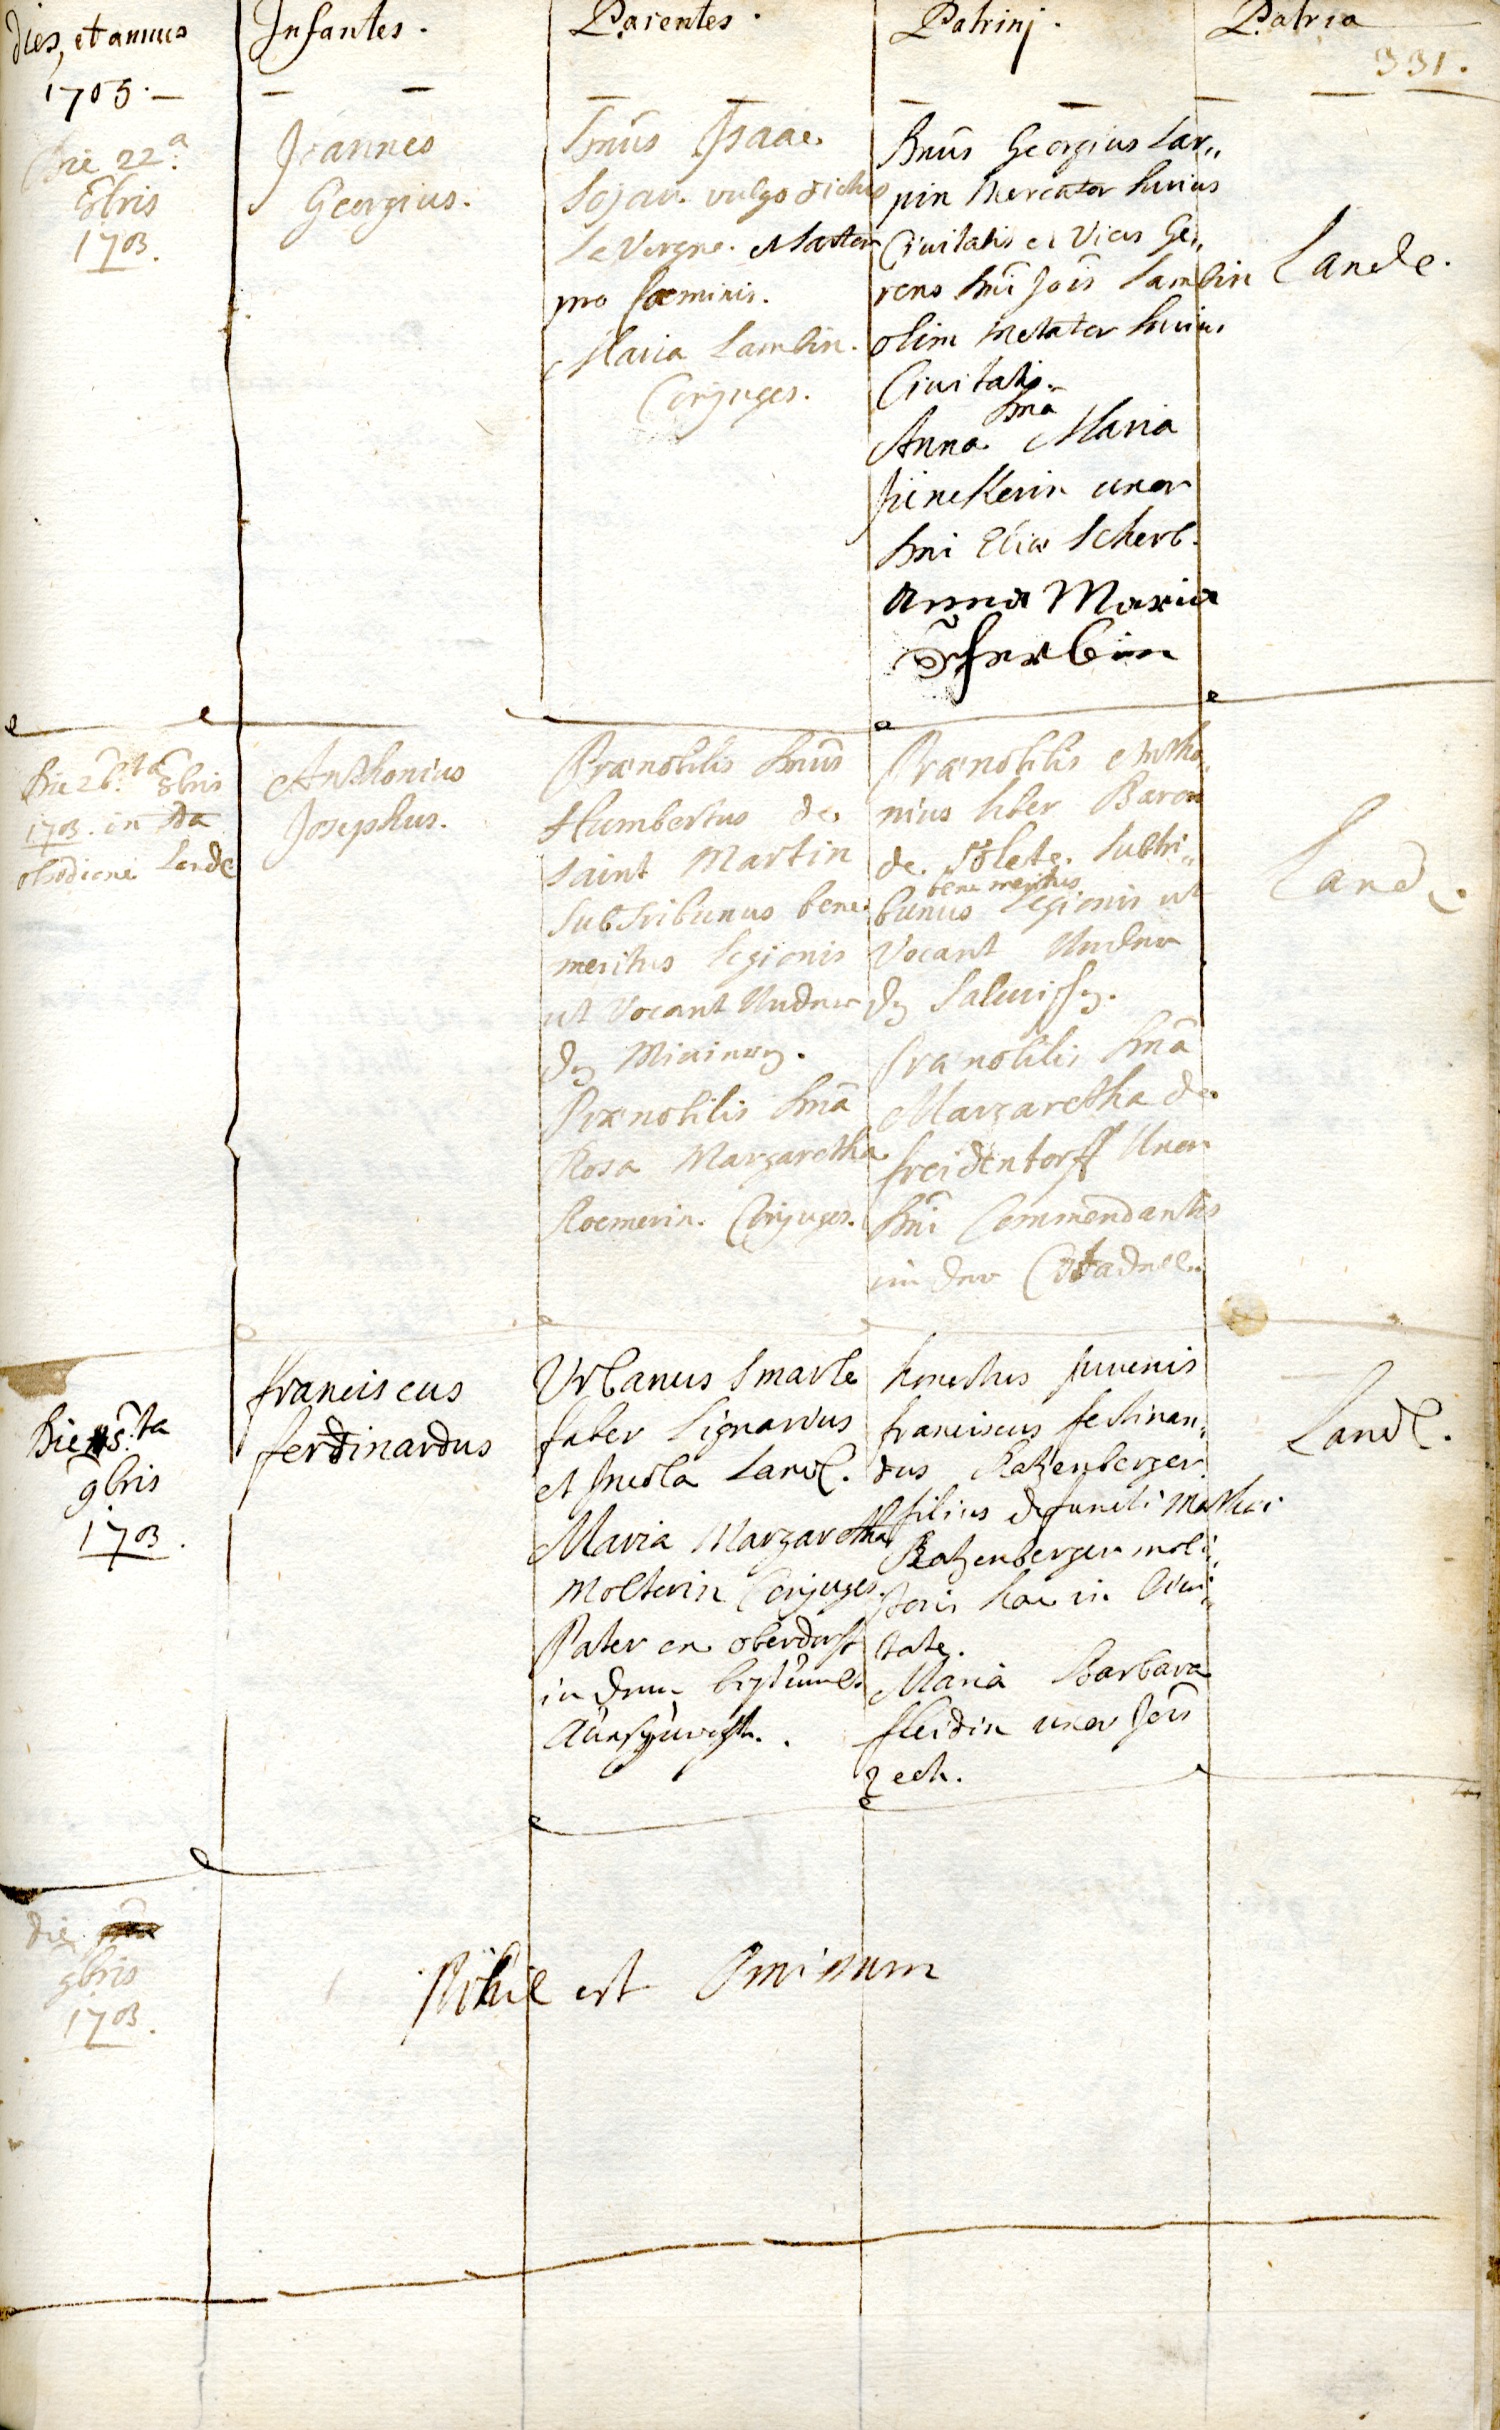 dies, et annus
1703.
Infantes.
Parentes.
Patrinj.
Patria
331.
Die 22.a
8bris
1703.
Joannes
Georgius.
Dnus Isaac
Sojau vulgo dictus
La Vergne.
pro foeminis.
Maria Lamlin.
Conjuges.
Dnus Georgius Lar„
pin Mercator huius
Civitatis et Vices Ge„
rens Dni Jois Lamlin
olim huius
Civitatis.
Dna
Anna Maria
uxor
Dni Eliae Scherb.
Anna Maria
Scherbin
Lande.
Die 26.ta 8bris
1703. in
obsidione Lande
Anthonius
Josephus.
Praenobilis Dnus
Humbertus de
Saint Martin
Subtribunus bene
meritus Legionis
ut Vocant Under
Praenobilis Dna
Rosa Margaretha
Roemerin. Conjuges.
Praenobilis Antho„
nius liber Baron
de Solete. Subtri„
bene meritus
bunus Legionis ut
Vocant Under
Praenobilis Dna
Margaretha de
freidentorff Uxor
Dni Commendantis
in der Citadell.
Land.
Die 5.ta
9bris
1703.
franciscus
ferdinardus
Urbanus Smarle
faber Lignarius
et Incola Land.
Maria Margaretha
Molterin Conjuges.
Pater ex oberdorff
in dem
honestus Juvenis
franciscus ferdinan„
dus Katzenberger
filius defuncti Mathaei
Katzenberger moli„
toris hac in Civi„
tate.
Maria Barbara
fleidin uxor Jois
Zech.
Land.
die
9bris
1703.
Nihil est Omissum